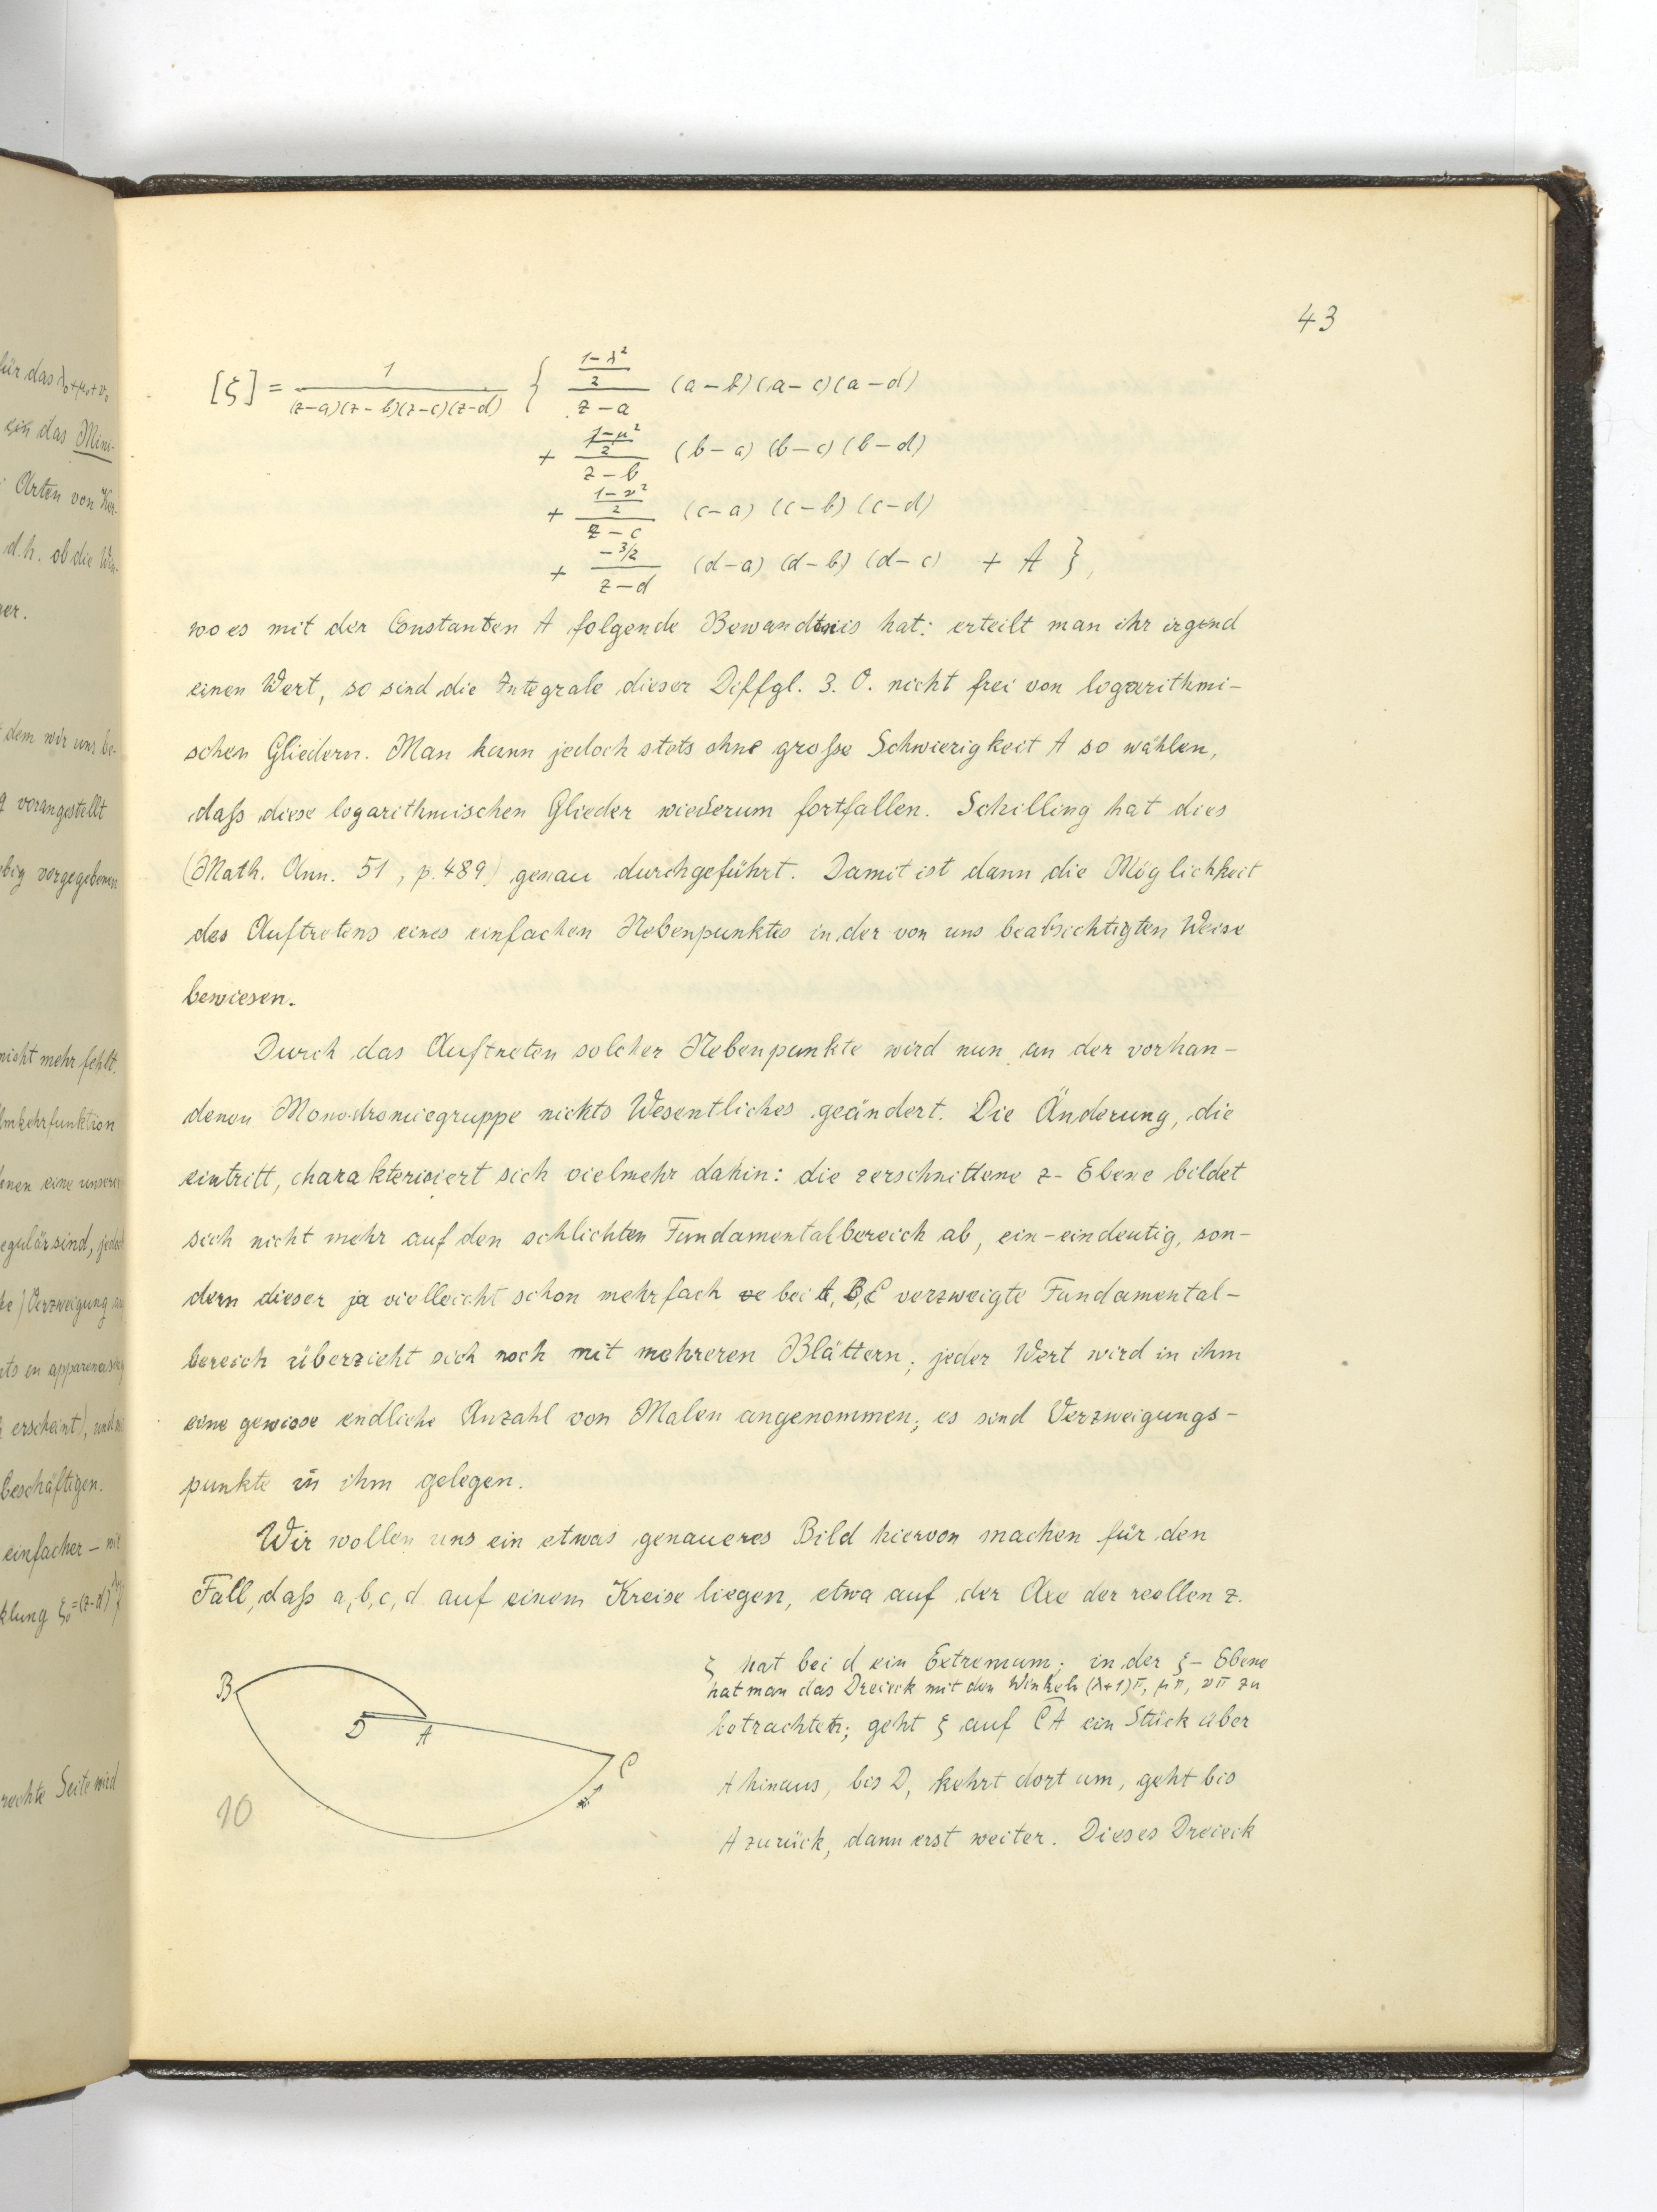 43
[ζ] = 1/((z-a)(z-b)(z-c)(z-d)) { ((1-λ²)/2)/(z-a) (a-b)(a-c)(a-d)
+ ((1-μ²)/2)/(z-b) (b-a)(b-c)(b-d)
+ ((1-ν²)/2)/(z-c) (c-a)(c-b)(c-d)
+ (-3/2)/(z-d) (d-a)(d-b)(d-c) + A },
wo es mit der Constanten A folgende Bewandtnis hat: erteilt man ihr irgend
einen Wert, so sind die Integrale dieser Diffgl. 3. O. nicht frei von logarithmi-
schen Gliedern. Man kann jedoch stets ohne große Schwierigkeit A so wählen,
daß diese logarithmischen Glieder wiederum fortfallen. Schilling hat dies
(Math. Ann. 51, p. 489) genau durchgeführt. Damit ist dann die Möglichkeit
des Auftretens eines einfachen Nebenpunktes in der von uns beabsichtigten Weise
bewiesen.
Durch das Auftreten solcher Nebenpunkte wird nun an der vorhan-
denen Monodromiegruppe nichts Wesentliches geändert. Die Änderung, die
eintritt, charakterisiert sich vielmehr dahin: die zerschnittene z-Ebene bildet
sich nicht mehr auf den schlichten Fundamentalbereich ab, ein-eindeutig, son-
dern dieser ja vielleicht schon mehrfach bei A, B, C verzweigte Fundamental-
bereich überzieht sich noch mit mehreren Blättern; jeder Wert wird in ihm
eine gewisse endliche Anzahl von Malen angenommen; es sind Verzweigungs-
punkte in ihm gelegen.
Wir wollen uns ein etwas genaueres Bild hiervon machen für den
Fall, daß a, b, c, d auf einem Kreise liegen, etwa auf der Axe der reellen z.
ζ hat bei d ein Extremum; in der ζ-Ebene
hat man das Dreieck mit den Winkeln (λ+1)π, μπ, νπ zu
betrachten; geht ζ auf CA ein Stück über
A hinaus, bis D, kehrt dort um, geht bis
A zurück, dann erst weiter. Dieses Dreieck
B
D
A
C
10
für das λ₀+μ₀+ν₀
ein das Mini-
Arten von
d.h. ob die
dem wir uns be-
vorangestellt
vorgegebenen
nicht mehr fehlt.
Umkehrfunktion
eine unserer
regulär sind,
Verzweigung
erscheint),
beschäftigen.
einfacher – mit
rechte Seite wird